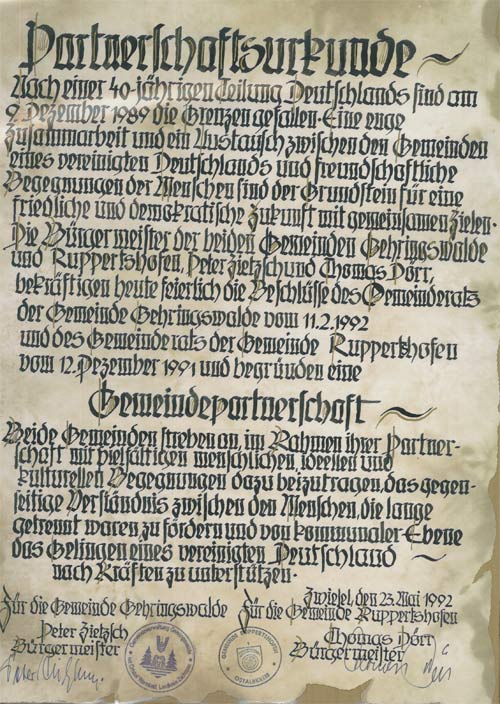 Partnerschaftsurkunde
Nach einer 40-jährigen Teilung Deutschlands sind am
9. Dezember 1989 die Grenzen gefallen. Eine enge
Zusammarbeit und ein Austausch zwischen den Gemeinden
eines vereinigten Deutschlands und freundschaftliche
Begegnungen der Menschen sind der Grundstein für eine
friedliche und demokratische Zukunft mit gemeinsamen Zielen.
Die Bürgermeister der beiden Gemeinden Gehringswalde
und Ruppertshofen, Peter Zietzsch und Thomas Dörr,
bekräftigen heute feierlich die Beschlüsse des Gemeinderats
der Gemeinde Gehringswalde vom 11.2.1992
und des Gemeinderats der Gemeinde Ruppertshofen
vom 12. Dezember 1991 und begründen eine
Gemeindepartnerschaft
Beide Gemeinden streben an, im Rahmen ihrer Partner-
schaft mit vielfältigen menschlichen, ideellen und
kulturellen Begegnungen dazu beizutragen, das gegen-
seitige Verständnis zwischen den Menschen, die lange
getrennt waren zu fördern und von kommunaler Ebene
das Gelingen eines vereinigten Deutschland
nach Kräften zu unterstützen.
Zwiesel, den 23. Mai 1992
Für die Gemeinde Gehringswalde Für die Gemeinde Ruppertshofen
Peter Zietzsch Thomas Dörr
Bürgermeister Bürgermeister
GEMEINDE RUPPERTSHOFEN
OSTALBKREIS